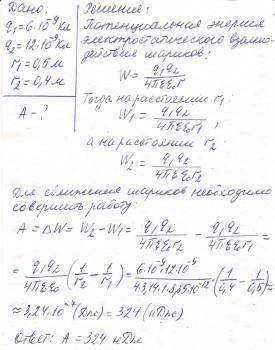 Дано:
q₁=6·10⁻⁹Кл
q₂=12·10⁻⁹Кл
r₁=0,5м
r₂=0,4м
A-?
Решение:
Потенциальная энергия
электростатического взаимо-
действия шариков:
W = q₁q₂/4πεε₀r
Тогда на расстоянии r₁:
W₁ = q₁q₂/4πεε₀r₁,
а на расстоянии r₂:
W₂ = q₁q₂/4πεε₀r₂
Для сближения шариков необходимо
совершить работу:
A = ΔW = W₂ - W₁ = q₁q₂/4πεε₀r₂ - q₁q₂/4πεε₀r₁ =
= q₁q₂/4πεε₀ (1/r₂ - 1/r₁) = 6·10⁻⁹·12·10⁻⁹/4·3,14·1·8,85·10⁻¹² (1/0,4 - 1/0,5) ≈
≈ 3,24·10⁻⁷(Дж) = 324 (нДж)
Ответ: A = 324 нДж